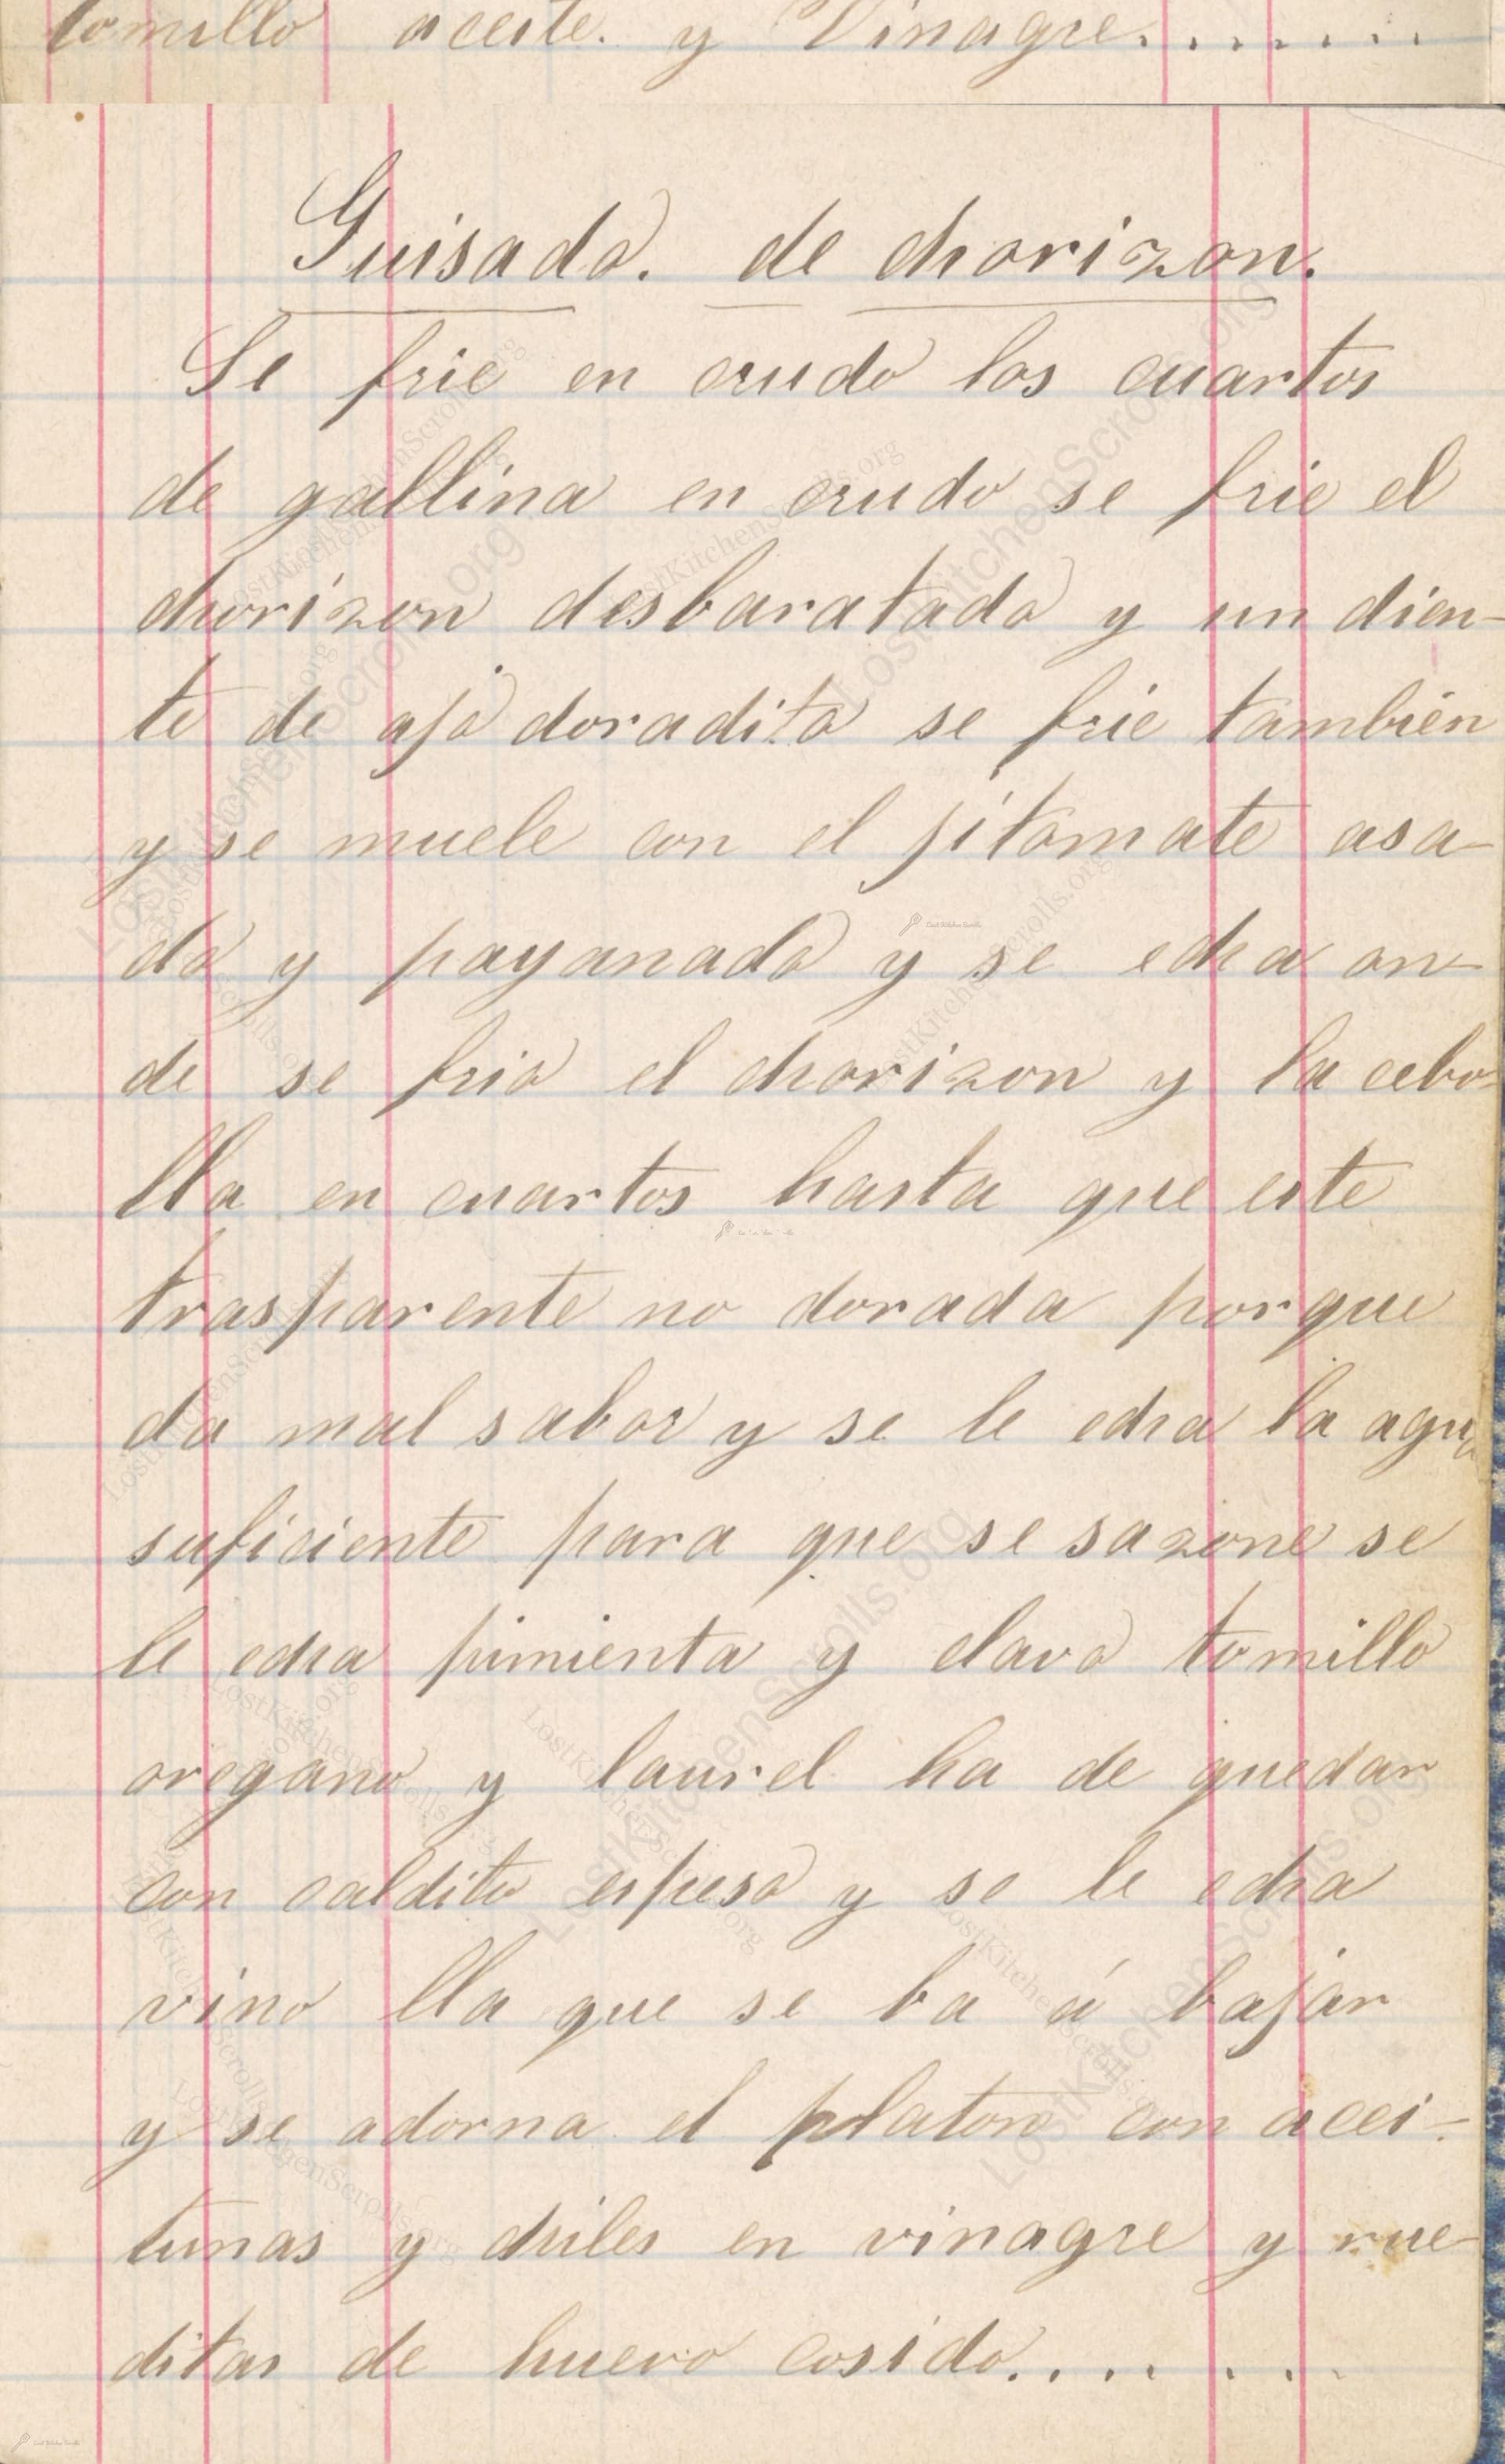 tomillo aceite. y Vinagre.......
Guisado. de chorizon.
Se frie en crudo los cuartos
de gallina en crudo se frie el
chorizon desbaratado y un dien-
te de ajo doradito se frie tambien
y se muele con el jitomate asa-
do y payanado y se echa on-
de se frio el chorizon y la cebo-
lla en cuartos hasta que este
trasparente no dorada porque
da mal sabor y se le echa la agua
suficiente para que se sazone se
le echa pimienta y clavo tomillo
oregano y laurel ha de quedar
con caldito espeso y se le echa
vino lla que se ba á bajar
y se adorna el platon con acei-
tunas y chiles en vinagre y rue-
ditas de huevo cosido.......